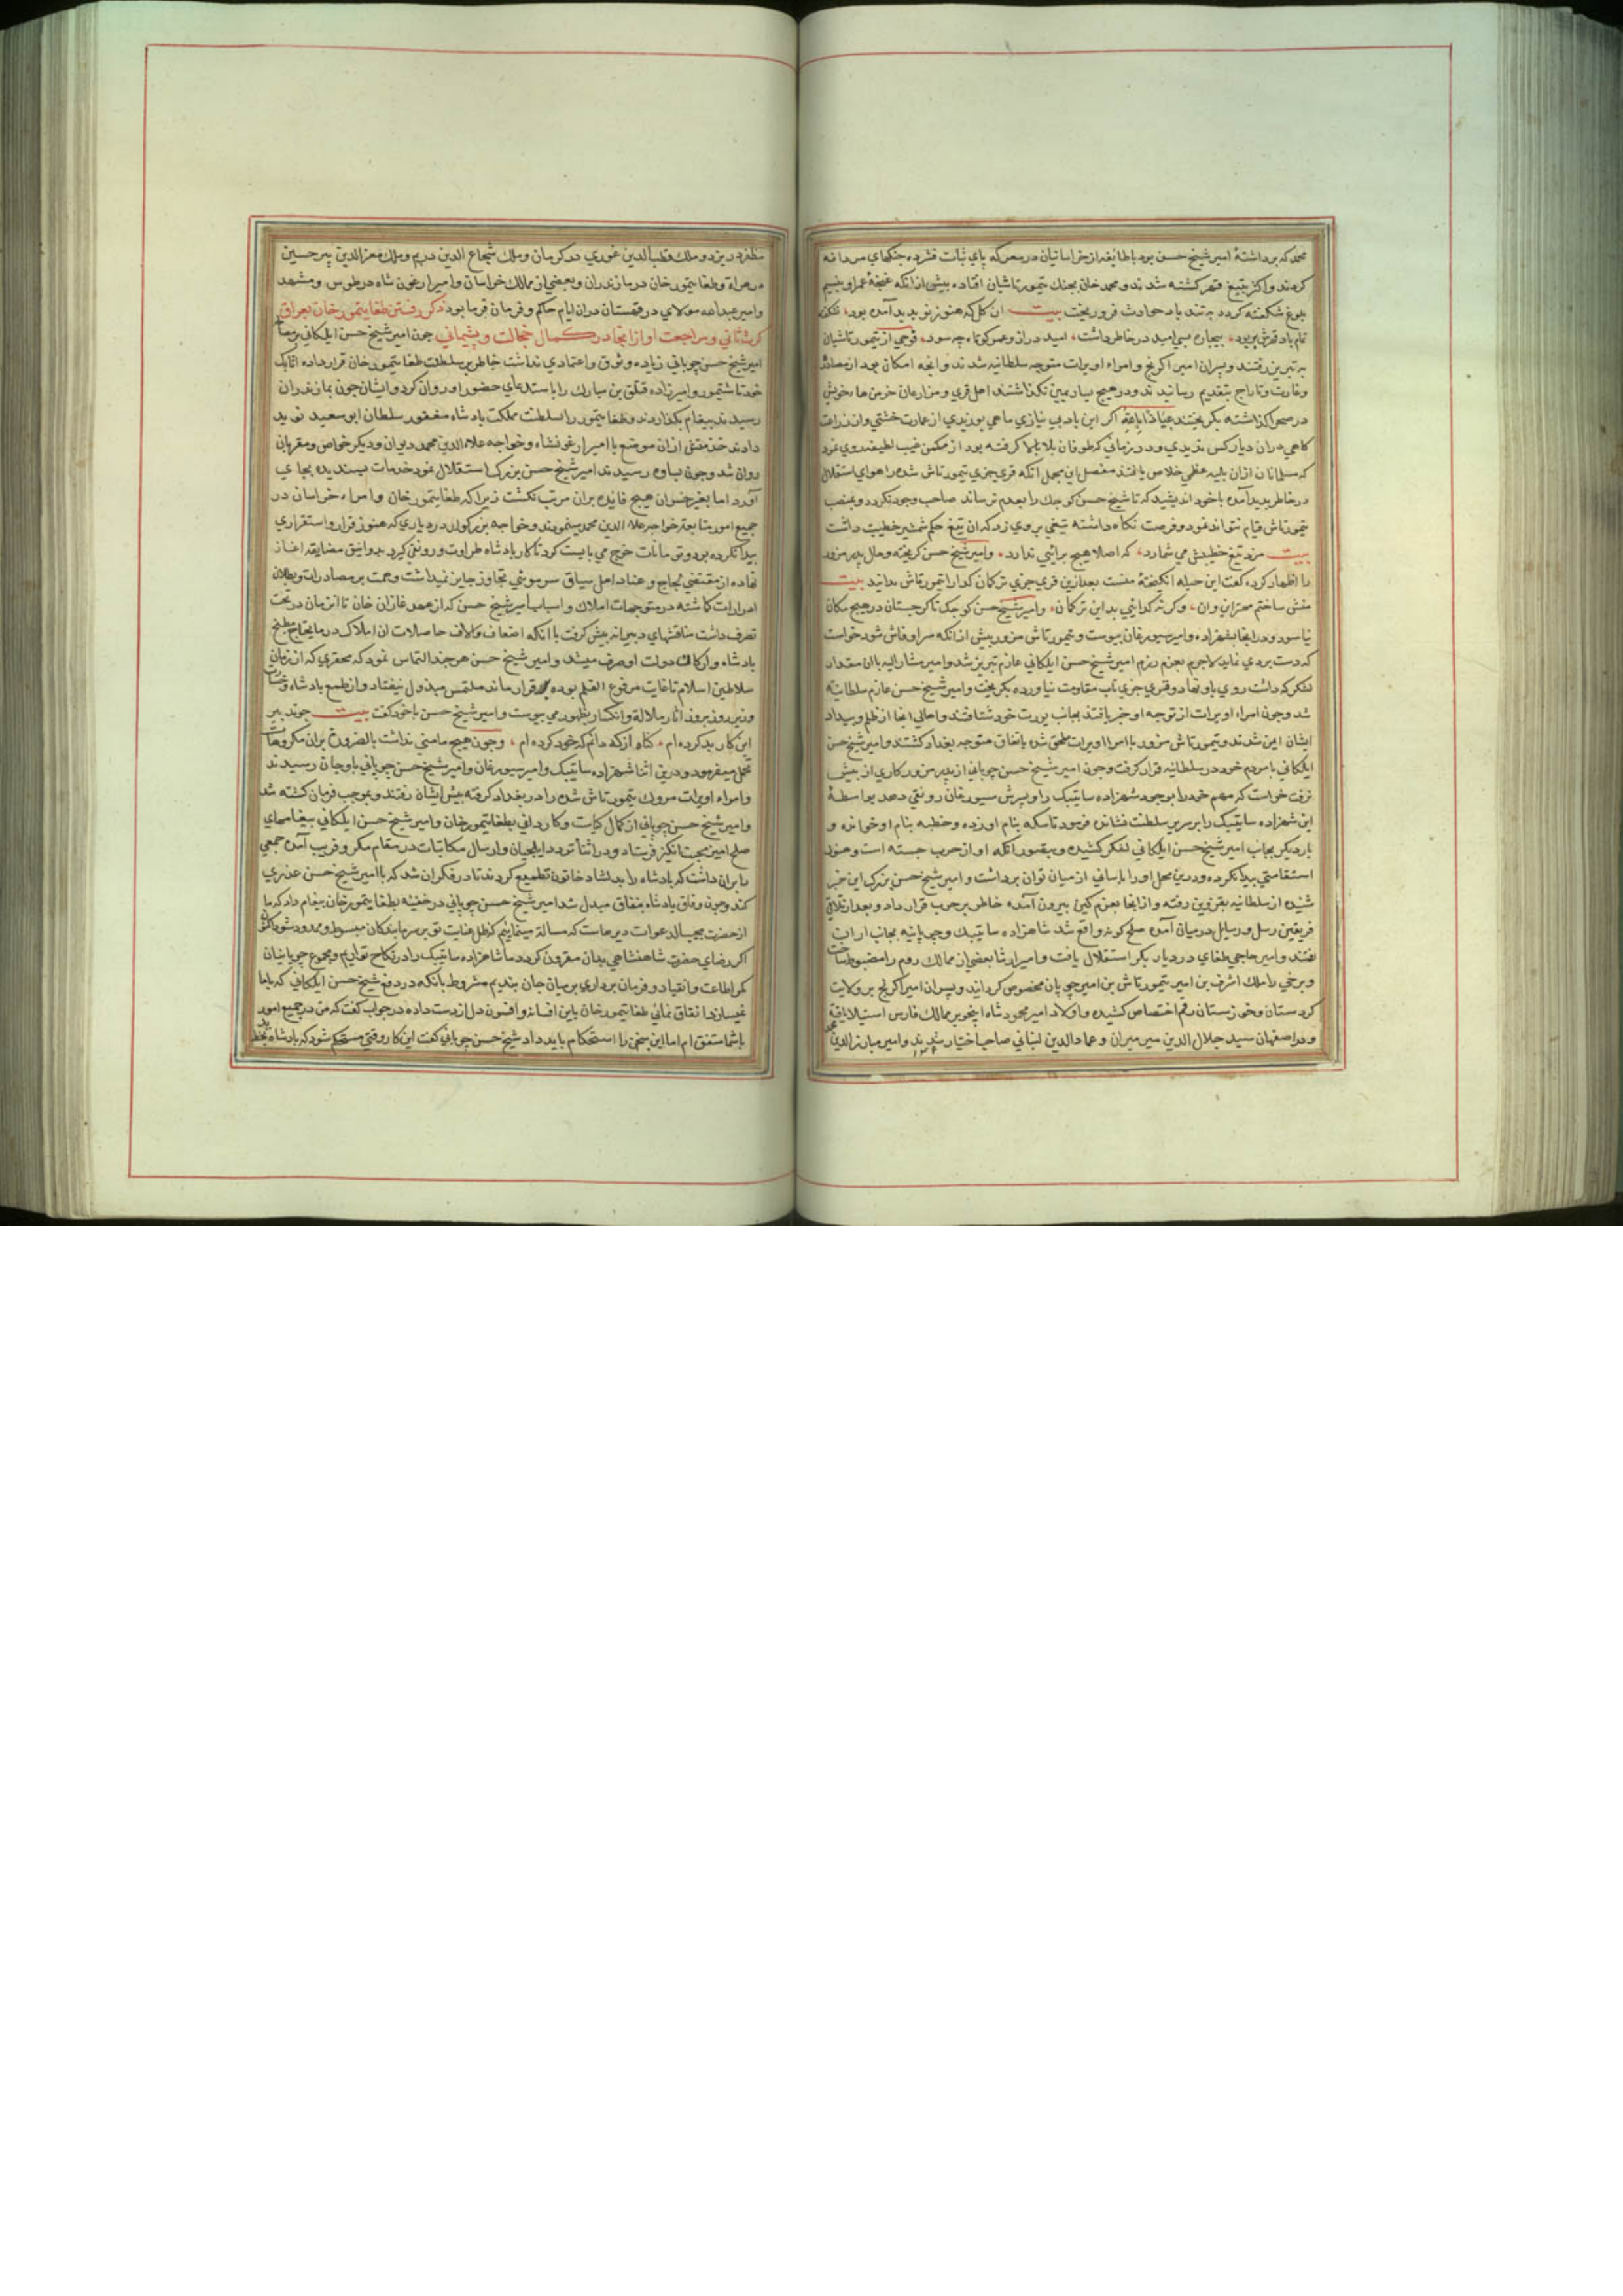 محمد که برداشتهٔ امیر شیخ حسن بود با طایفه از خراسانیان در معرکه پای ثبات فشرده جنکهای مردانه
کردند و اکثر بتیغ قهر کشته شدند و محمد خان بجنك تیمورتاشیان افتاده پیش از انکه غنچهٔ عمر او بنسیم
بلوغ شکفته کردد به تند باد حوادث فرو ریخت بیت ان کل که هنوز نو بدید آمده بود، نشکفته
تمام باد قهرش بربود، بیچاره بسی امید در خاطر داشت، امید دراز و عمر کوتاه چه سود، فوجی از تیمورتاشیان
به تبریز رفتند و پسران امیر اکرنج و امراء اویرات متوجه سلطانیه شدند و انچه امکان بود از مصادره
و غارت و تاراج بتقدیم رسانیدند و در هیچ دیار بمین نکذاشتند اهل قری و مزارعان خرمن هاء خویش
در صحرا کذاشته بکریختند عیاذا بالله اکر این باد بی نیازی ماهی بوزیدی از عمارت خشتی و از زراعت
کاهی دران دیار کس ندیدی و در زمانی که طوفان بلا بالا کرفته بود از مکمن غیب لطیفه روی نمود
که مسلمانان ازان بلیه عظمی خلاص یافتند مفصل این مجمل انکه قری جری تیمورتاش شده را هوای استقلال
در خاطر بدید آمده با خود اندیشید که تا شیخ حسن کوچك را بعدم نرساند صاحب وجود نکردد و بمنصب
تیمورتاش قیام نتواند نمود و فرصت نکاه داشته تیغی بر وی زد که ان تیغ حکم شمشیر خطیب داشت
بیت مزد تیغ خطیبش می شمارد، که اصلا هیچ برائی ندارد، و امیر شیخ حسن کریخته و حال پدر مزور
را اظهار کرده کفت این حیله انکیختهٔ منست بعد ازین قری جری ترکمان کدا را تیمورتاش مدانید بیت
منش ساختم مهتر این وان، و کرنه کدائی بد این ترکمان، و امیر شیخ حسن کوچك تا کرجستان در هیچ مکان
نیاسود و در انجا بشهزاده و امیر سیورغان پیوست و تیمورتاش مزور پیش از انکه سر او فاش شود خواست
که دست بردی نماید لاجرم بعزم رزم امیر شیخ حسن ایلکانی عازم تبریز شد و امیر مشار الیه با ان مقدار
لشکر که داشت روی باو نهاد و قری جری تاب مقاومت نیاورده بکریخت و امیر شیخ حسن عازم سلطانیه
شد و چون امراء اویرات از توجه او خبر یافتند بجانب یورت خود شتافتند و اهالی انجا از ظلم و بیداد
ایشان ایمن شدند و تیمورتاش مزور با امرا اویرات ملحق شده باتفاق متوجه بغداد کشتند و امیر شیخ حسن
ایلکانی با مردم خود در سلطانیه قرار کرفت و چون امیر شیخ حسن چوپانی از پدر مزور کاری از پیش
نرفت خواست که مهم خود را بوجود شهزاده ساتیبک راو پسرش سیورغان رونقی دهد بواسطهٔ
این شهزاده ساتیبک را بر سریر سلطنت نشانده فرمود تا سکه بنام او زده و خطبه بنام او خوانده و
بار دیکر بجانب امیر شیخ حسن ایلکانی لشکر کشیده و بتصور انکه او از حرب جسته است و هنوز
استقامتی پیدا نکرده و درین محل او را باسانی از میان توان برداشت و امیر شیخ حسن بزرک این خبر
شنیده از سلطانیه بقزوین رفته و از انجا بعزم کین بیرون آمده خاطر بر حرب قرار داد و بعد از تلاقی
فریقین رسل و رسایل در میان آمده صلح کونه واقع شد شاهزاده ساتیبک و چوپانیه بجانب اران
رفتند و امیر حاجی طغای در دیار بکر استقلال یافت و امیر ارتنا بعضی از ممالك روم را مضبوط ساخت
و برخی را ملك اشرف بن امیر تیمورتاش بن امیر چوپان مخصوص کردانید و پسران امیر اکرنج بر ولایت
کردستان و خوزستان رقم اختصاص کشیده و اولاد امیر محمود شاه اینجو بر ممالك فارس استیلا یافته
و در اصفهان سید جلال الدین میر میران و عماد الدین لنبانی صاحب اختیار شدند و امیر مبارز الدین محمد
مظفر در یزد و ملك قطب الدین غوری در کرمان و ملك شجاع الدین در بم و ملك معز الدین پیر حسین
در هراة و طغا تیمور خان در مازندران و بعضی از ممالك خراسان و امیر ارغون شاه در طوس و مشهد
و امیر عبدالله مولای در قهستان دران ایام حاکم و فرمان فرما بود ذکر رفتن طغا تیمور خان بعراق
کرت ثانی و مراجعت او از انجا در کمال خجالت و پشیمانی چون امیر شیخ حسن ایلکانی بر مصالحه
امیر شیخ حسن چوپانی زیاده وثوق و اعتمادی نداشت خاطر بر سلطنت طغا تیمور خان قرار داده اتابك
خود تاشتیمور و امیرزاده قتلق بن مبارك را باستدعای حضور او روان کرد و ایشان چون بمازندران
رسیدند پیغام بکذاردند و طغا تیمور را سلطنت مملکت پادشاه مغفور سلطان ابو سعید نوید
دادند خدمتش ازان موضع با امیر ارغونشاه و خواجه علاء الدین محمد دیوان و دیکر خواص و مقربان
روان شد و چون بساوه رسیدند امیر شیخ حسن بزرك استقلال نمود خدمات پسندیده بجای
آورد اما بغیر خسران هیچ فایده بران مرتب نکشت زیرا که طغا تیمور خان و امراء خراسان در
جمیع امور متابعت خواجه علاء الدین محمد مینمودند و خواجه بزرکوار در دیاری که هنوز قرار و استقراری
پیدا نکرده بود و تومانات خرج می بایست کرد تا کار پادشاه طراوت و رونقی کیرد بدوانیق مضایقه اغاز
نهاده از مقتضی لجاج و عناد اهل سیاق سر موئی تجاوز جایز نمیداشت و همت بر مصادرات و بطلان
ادرارات کماشته در متوجهات املاك و اسباب امیر شیخ حسن که از عهد غازان خان تا ان زمان در تحت
تصرف داشت مناقشهای دبیرانه پیش کرفت با انکه اضعاف و الاف حاصلات ان املاك در ما یحتاج مطبخ
پادشاه و ارکان دولت او صرف میشد و امیر شیخ حسن هر چند التماس نمود که محقری که از زمان
سلاطین اسلام تا غایت مرفوع القلم بوده قرار ماند ملتمس مبذول نیفتاد و از طمع پادشاه
وزیر روز بروز اثار ملالة و انکسار بظهور می پیوست و امیر شیخ حسن با خود کفت بیت چو تدبیر
این کار بد کرده ام، کناه از که دانم که خود کرده ام، و چون هیچ مامنی نداشت بالضرورة بران مکروهات
تحمل میفرمود و درین اثنا شهزاده ساتیبک و امیر سیورغان و امیر شیخ حسن چوپانی باوجان رسیدند
و امراء اویرات مزورك تیمورتاش شده را در بغداد کرفته پیش ایشان رفتند و بموجب فرمان کشته شد
و امیر شیخ حسن چوپانی از کمال کیاست و کاردانی بطغا تیمور خان و امیر شیخ حسن ایلکانی پیغامهای
صلح امیز محبت انکیز فرستاد و در اثناء تردد ایلچیان و ارسال مکاتبات در مقام مکر و فریب آمده جمعی
را بران داشت که پادشاه را بدلشاد خاتون تطمیع کردند تا در فکر ان شد که با امیر شیخ حسن عذری
کند و چون وفاق پادشاه بنفاق مبدل شد امیر شیخ حسن چوپانی در خفیه بطغا تیمور خان پیغام داد که ما
از حضرت مجیب الدعوات دیر هاست که مسالة مینماییم که ظل عنایت تو بر سر ما بندکان مبسوط و ممدود شود اکنون
اکر رضای حضرت شاهنشاهی بدان مقرون کردد ما شاهزاده ساتیبک را در نکاح تو اریم و مجموع چوپانیان
کمر اطاعت و انقیاد و فرمان برداری بر میان جان بندیم مشروط بانکه در دفع شیخ حسن ایلکانی که با ما
نمیسازد اتفاق نمائی طغا تیمور خان باین افسانه و افسون دل از دست داده در جواب کفت که من در جمیع امور
با شما متفق ام اما این سخن را استحکام باید داد شیخ حسن چوپانی کفت این کار وقتی مستحکم شود که پادشاه بخط